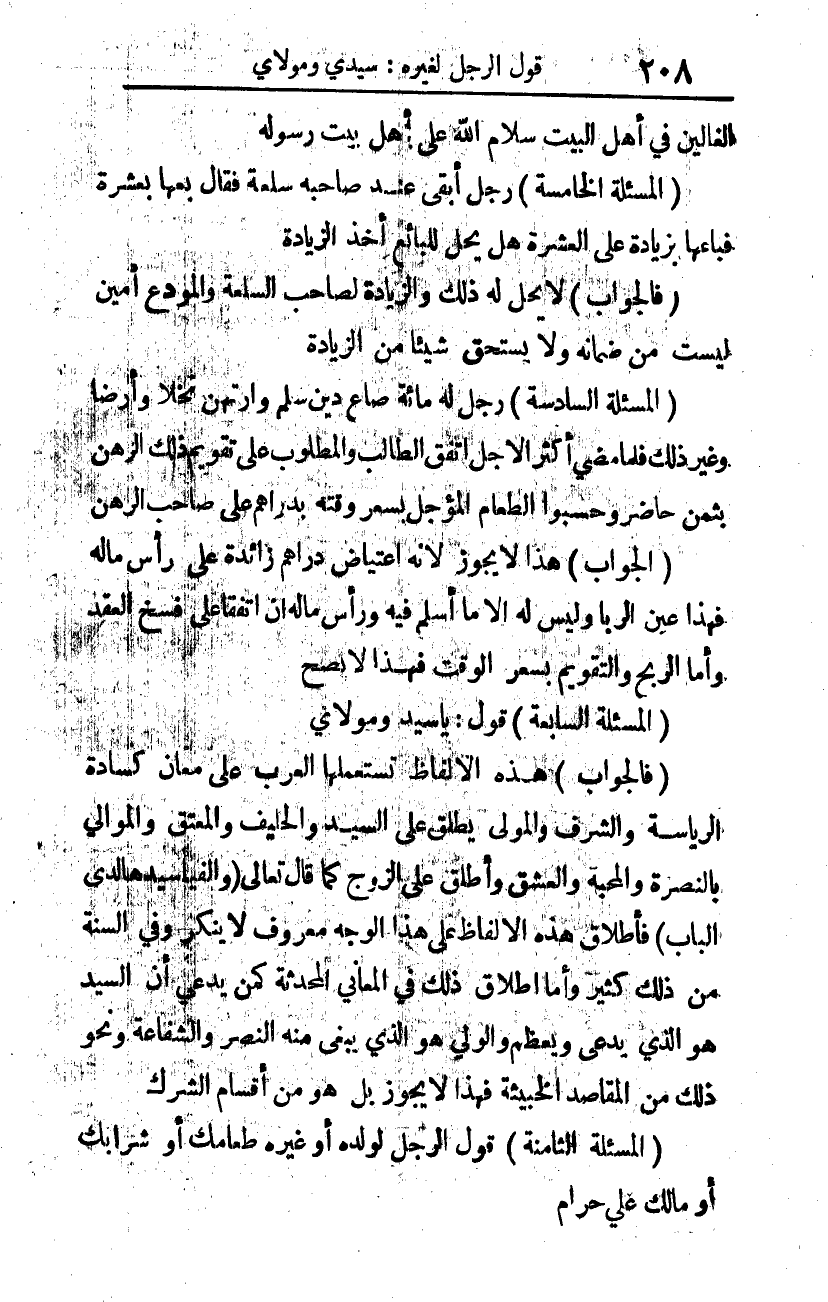 ٢٠٨ قول الرجل لغيره : سيدي ومولاي
الغالين في أهل البيت سلام الله على أهل بيت رسوله
( المسئلة الخامسة ) رجل أبقى عنـد صاحبه سلعة فقال بعها بعشرة
فباعها بزيادة على العشرة هل يحل للبائع أخذ الزيادة
( فالجواب ) لا يحل له ذلك والزيادة لصاحب السلعة والمودع أمين
ليست من ضمانه ولا يستحق شيئا من الزيادة
( المسئلة السادسة ) رجل له مائة صاع دين سلم وارتهن نخلا وأرضا
وغير ذلك فلما مضي أكثر الاجل اتفق الطالب والمطلوب على تقويم ذلك الرهن
بثمن حاضر وحسبوا الطعام المؤجل بسعر وقته بدراهم على صاحب الرهن
( الجواب ) هذا لا يجوز لانه اعتياض دراهم زائدة على رأس ماله
فهذا عين الربا وليس له الا ما أسلم فيه ورأس ماله ان اتفقا على فسخ العقد
وأما الربح والتقويم بسعر الوقت فهـذا لا يصح
( المسئلة السابعة ) قول : ياسيد ومولاي
( فالجواب ) هـذه الالفاظ تستعملها العرب على معان كسادة
الرياسـة والشرف والمولى يطلق على السيـد والحليف والمعتق والموالي
بالنصرة والمحبة والعشق وأطلق على الزوج كما قال تعالى (والفيا سيدها لدى
الباب) فأطلاق هذه الالفاظ على هذا الوجه معروف لا ينكر وفي السنة
من ذلك كثير وأما اطلاق ذلك في المعاني المحدثة كمن يدعي أن السيد
هو الذي يدعى ويعظم والولي هو الذي يبغى منه النصر والشفاعة ونحو
ذلك من المقاصد الخبيثة فهذا لا يجوز بل هو من أقسام الشرك
( المسئلة الثامنة ) قول الرجل لولده أو غيره طعامك أو شرابك
أو مالك علي حرام